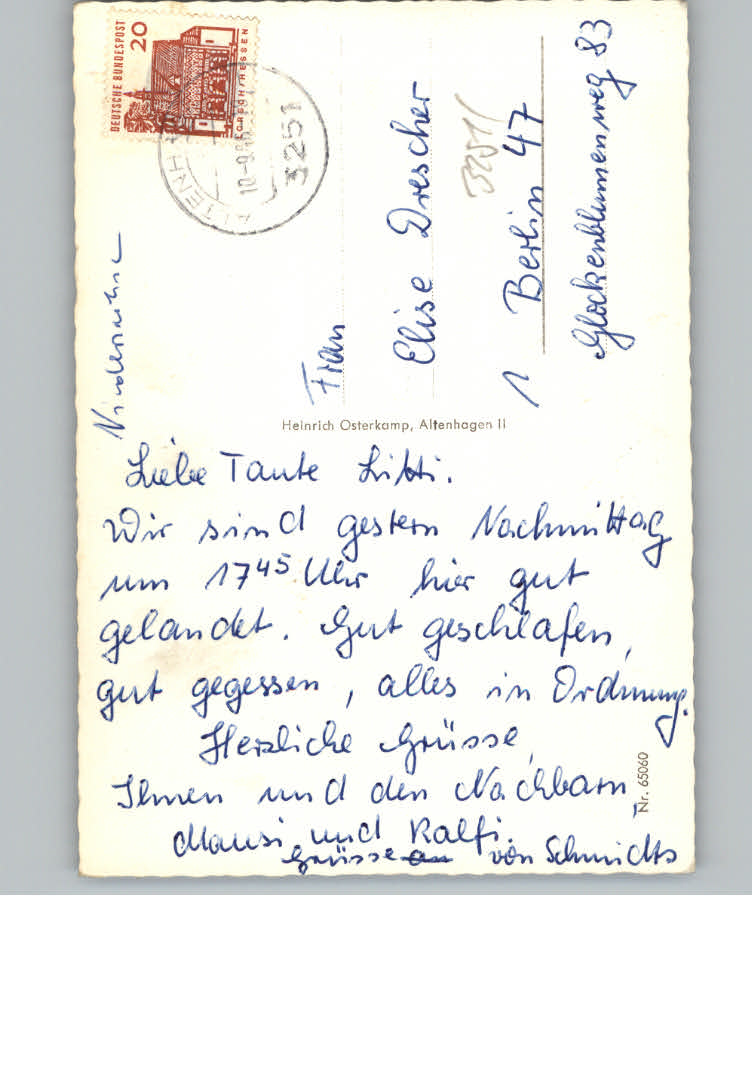 DEUTSCHE BUNDESPOST
20
LORSCH/HESSEN
3251
Frau
Elise Drescher
3251
1 Berlin 47
Glockenblumenweg 83
Heinrich Osterkamp, Altenhagen II
Liebe Tante Litti.
Wir sind gestern Nachmittag
um 17⁴⁵ Uhr hier gut
gelandet. Gut geschlafen,
gut gegessen, alles in Ordnung.
Herzliche Grüsse
Ihnen und den Nachbarn,
Mausi und Ralfi.
Grüsse von Schmidts
Nr. 65060